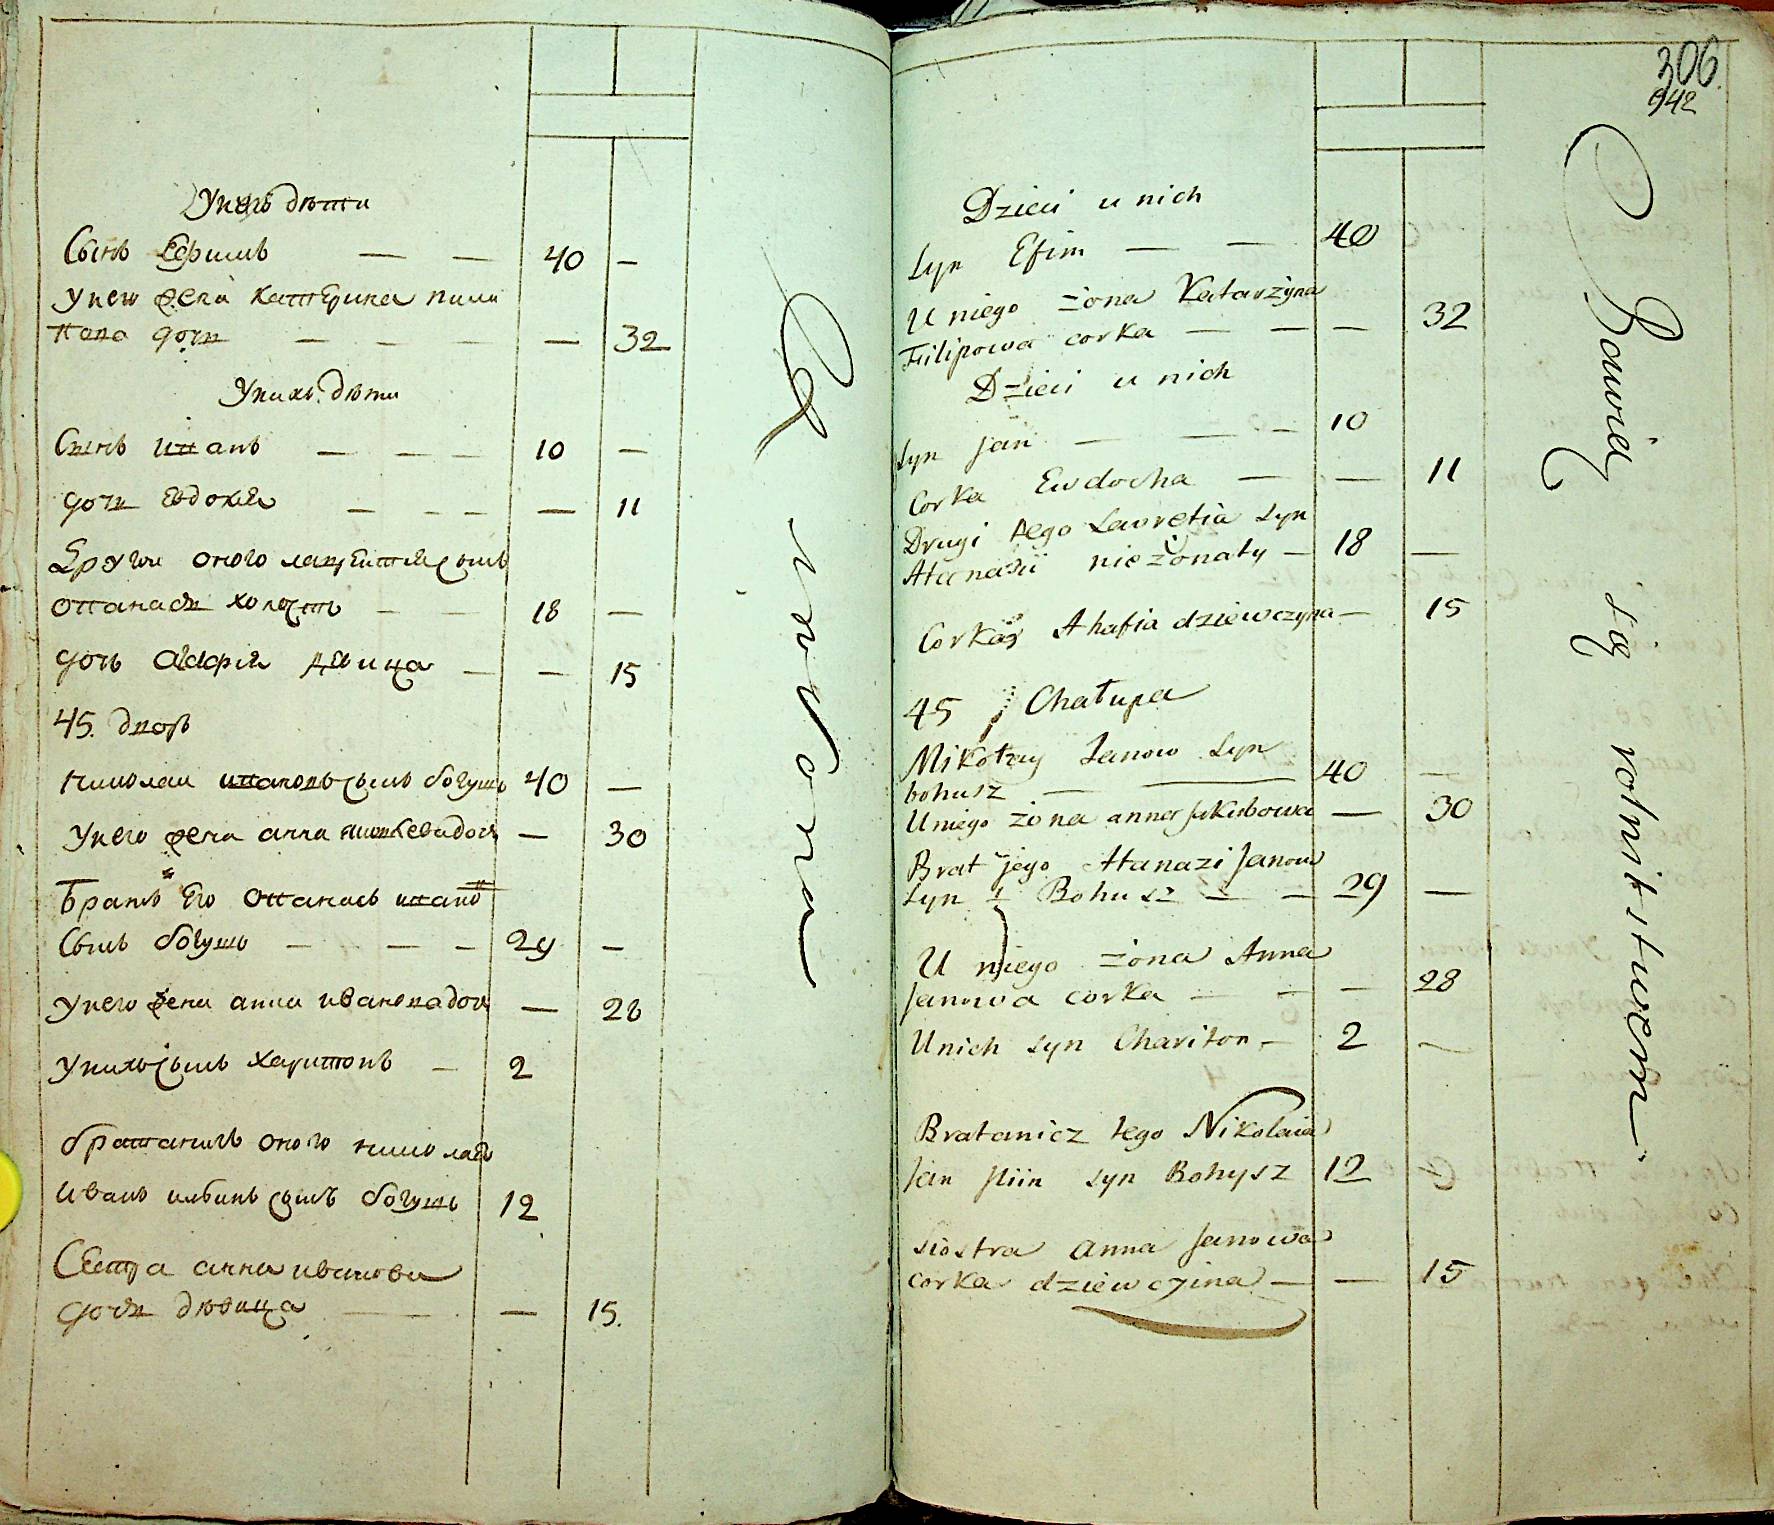 Унихъ дѣти
Сынъ Ефимъ — — 40 —
Унего жена катерина фили
пова дочь — — — — 32
Унихъ дѣти
Сынъ иванъ — — — 10 —
дочь евдокия — — — — 11
Другои оного лаврентия сынъ
отанаси холостъ — — 18 —
дочь агафия девица — — 15
45. дворъ
николаи ивановъ сынъ богушъ 40 —
Унего жена анна — 30
братъ Его отанасъ иванов
Сынъ богушъ — — — 29 —
Унего жена анна иванова дочь — 28
Унихъ сынъ харитонъ — 2
братаничъ оного николая
иванъ сынъ богушъ 12
Сестра анна иванова
дочь девица — — 15.
306
942
Dzieci u nich
Syn Efim — — 40
U niego żona Katarzyna
Filipowa corka — — — 32
Dzieci u nich
Syn Jan — — — 10
Corka Ewdocha — — 11
Drugi tego Lavretia Syn
Atanasii nieżonaty — 18 —
Corka Ahafia dziewczyna — 15
45 Chałupa
Mikołay Janow Syn
bohusz — — 40 —
U niego żona anna Jakubowa — 30
Brat jego Atanazi Janow
Syn Bohusz — — 29 —
U niego żona Anna
Janowa corka — — — 28
Unich syn Chariton — 2 —
Bratanicz tego Nikolaia
Jan syn Bohysz 12
siostra anna Janowa
corka dziewczina — — 15
Bawią się rolnictwem